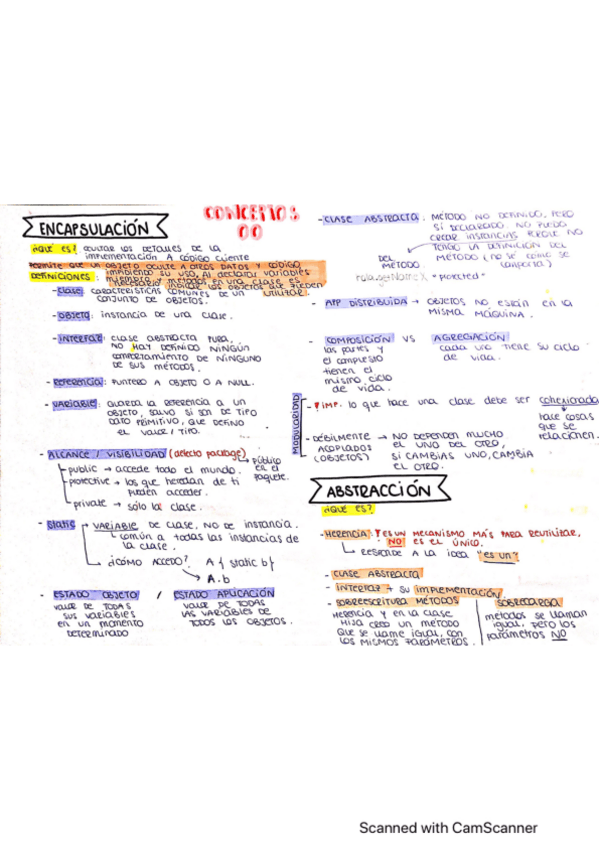 CONCEPTOS
OO
ENCAPSULACIÓN
¿QUÉ ES? OCULTAR LOS DETALLES DE LA
IMPLEMENTACIÓN A CÓDIGO CLIENTE
PERMITE QUE UN OBJETO OCULTE A OTROS DATOS Y CÓDIGO
IMPIDIENDO SU USO. AL DECLARAR VARIABLES
DEFINICIONES: MIEMBRO Y MÉTODOS EN UNA CLASE ES
NECESARIO INDICAR LOS OBJETOS QUE PUEDEN
UTILIZAR.
- CLASE: CARACTERÍSTICAS COMUNES DE UN
CONJUNTO DE OBJETOS.
- OBJETO: INSTANCIA DE UNA CLASE.
- INTERFAZ: CLASE ABSTRACTA PURA.
NO HAY DEFINIDO NINGÚN
COMPORTAMIENTO DE NINGUNO
DE SUS MÉTODOS.
- REFERENCIA: PUNTERO A OBJETO O A NULL.
- VARIABLE: GUARDA LA REFERENCIA A UN
OBJETO, SALVO SI SON DE TIPO
DATO PRIMITIVO, QUE DEFINO
EL VALOR / TIPO.
- ALCANCE / VISIBILIDAD (defecto package)
→ público en el paquete.
public → accede todo el mundo.
protective → los que heredan de ti
pueden acceder.
private → sólo la clase.
- Static → VARIABLE DE CLASE, NO DE INSTANCIA.
común a todas las instancias de
la clase.
¿CÓMO ACCEDO? A { static b }
→ A.b
- ESTADO OBJETO / ESTADO APLICACIÓN
VALOR DE TODAS
SUS VARIABLES
EN UN MOMENTO
DETERMINADO
VALOR DE TODAS
LAS VARIABLES DE
TODOS LOS OBJETOS.
- CLASE ABSTRACTA: MÉTODO NO DEFINIDO, PERO
SÍ DECLARADO. NO PUEDO
CREAR INSTANCIAS PORQUE NO
TENGO LA DEFINICIÓN DEL
MÉTODO (no sé cómo se
comporta)
DEL
MÉTODO.
"protected"
- APP DISTRIBUIDA → OBJETOS NO ESTÁN EN LA
MISMA MÁQUINA.
- COMPOSICIÓN VS AGREGACIÓN
las partes y
el compuesto
tienen el
mismo ciclo
de vida.
cada uno tiene su ciclo
de vida.
MODULARIDAD
- IMP. lo que hace una clase debe ser cohexionada
hace cosas
que se
relacionen.
- DÉBILMENTE → NO DEPENDEN MUCHO
ACOPLADOS EL UNO DEL OTRO,
(OBJETOS) SI CAMBIAS UNO, CAMBIA
EL OTRO.
ABSTRACCIÓN
¿QUÉ ES?
- HERENCIA: ES UN MECANISMO MÁS PARA REUTILIZAR,
NO ES EL ÚNICO.
RESPONDE A LA IDEA "es un"
- CLASE ABSTRACTA
- INTERFAZ + su IMPLEMENTACIÓN
- SOBREESCRITURA MÉTODOS
HERENCIA Y EN LA CLASE
HIJA CREO UN MÉTODO
QUE SE LLAME IGUAL, CON
LOS MISMOS PARÁMETROS.
SOBRECARGA
métodos se llaman
igual, pero los
parámetros NO
Scanned with CamScanner